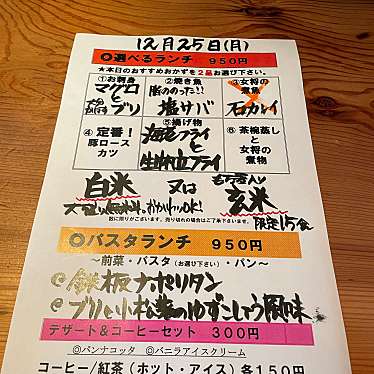 12月25日(月)
◎選べるランチ 950円
★本日のおすすめおかずを2品お選び下さい。
①お刺身
マグロ
と
ブリ
②焼き魚
脂ののった!!
塩サバ
③女将の
煮魚
石カレイ
④定番!
豚ロース
カツ
⑤揚げ物
海老フライ
と
⑥茶碗蒸し
と
女将の
煮物
白米 又は 玄米
もち麦入り
大盛り無料&おかわりOK!
数に限りがございます。売り切れの場合はご了承下さいませ。
限定15食
◎パスタランチ 950円
~前菜・パスタ(お選び下さい)・パン~
鉄板ナポリタン
ブリと小松菜のゆずこしょう風味
デザート&コーヒーセット 300円
◎パンナコッタ ◎バニラアイスクリーム
コーヒー/紅茶(ホット・アイス)各150円